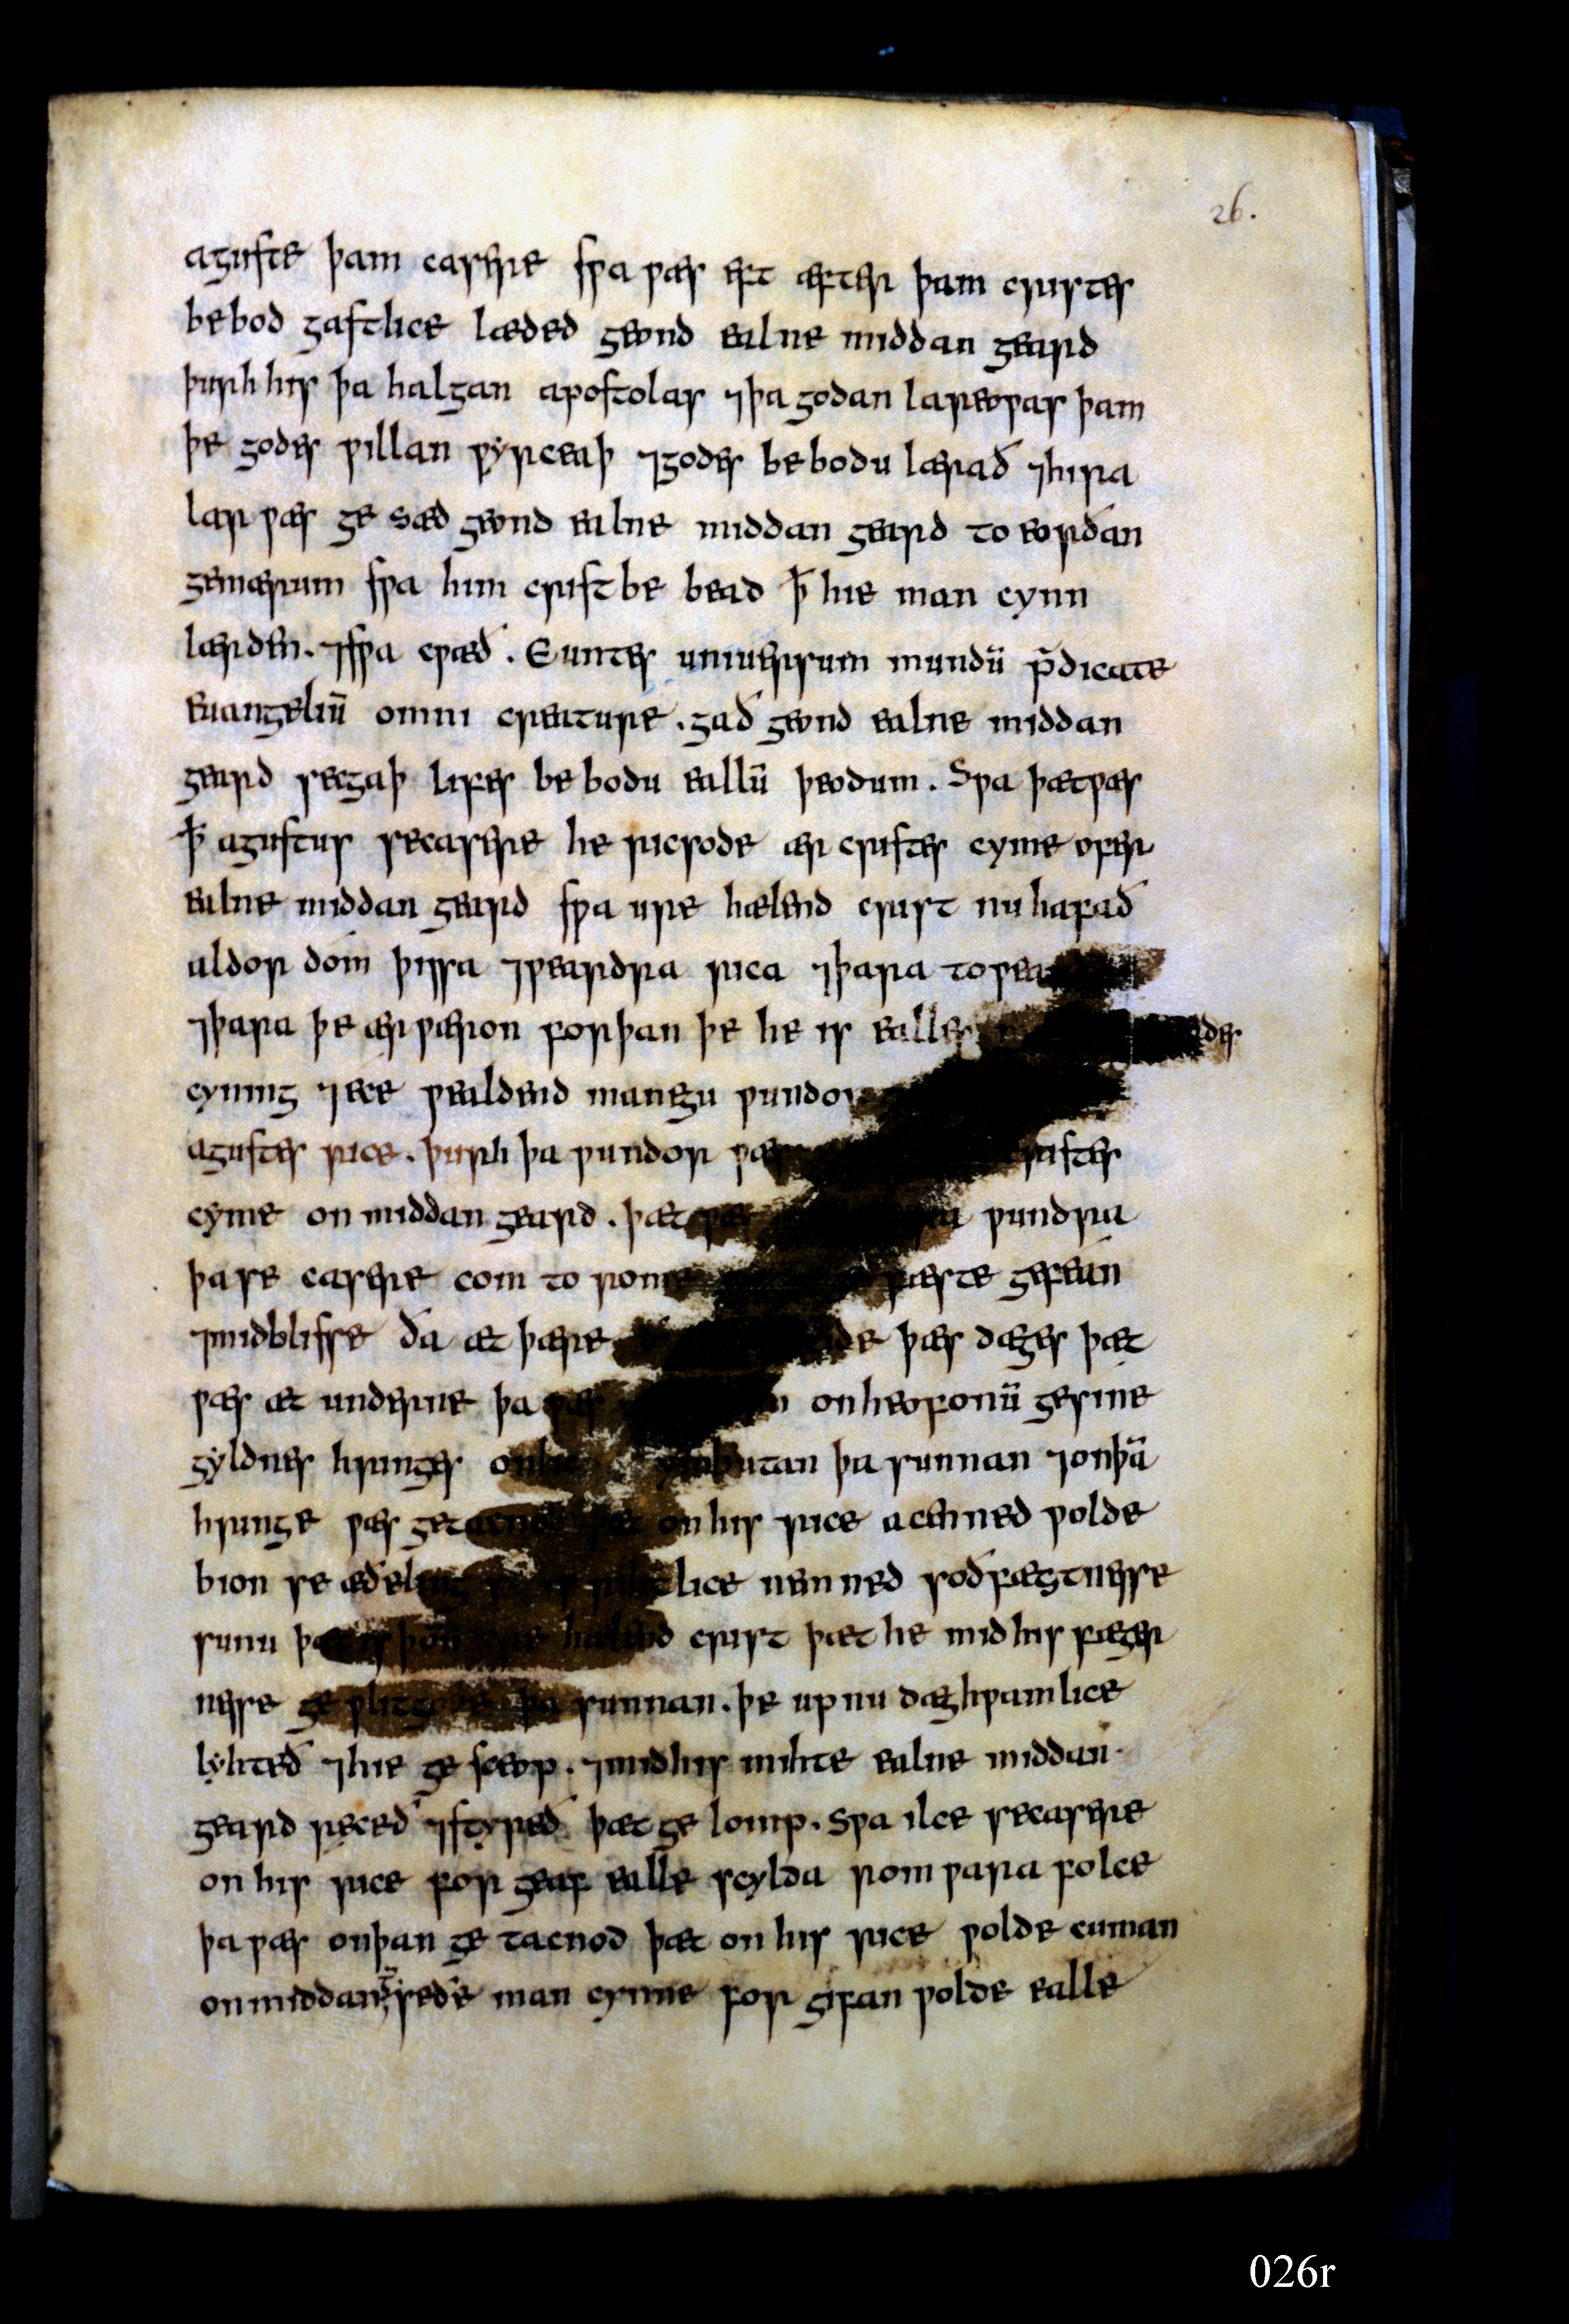 26.
aguste þam casere swa wæs eft æfter þam cristes
bebod gastlice læded geond ealne middan geard
þurh his þa halgan apostolas ⁊þa godan lareowas þam
þe godes willan wyrceaþ ⁊godes bebodu lærað ⁊hira
lar wæs ge sæd geond ealne middan geard to eorðan
gemærum swa him crist be bead ꝥ hie man cynn
lærden. ⁊swa cwæð. Euntes uniuersum mundū p̄dicate
euangeliū omni creature. gað geond ealne middan
geard secgaþ lifes be bodu eallū þeodum. Swa þætwæs
ꝥ agustus secasere he ricsode ær cristes cyme ofer
ealne middan geard swa ure hælend crist nu hafað
aldor dóm þissa ⁊weardra rica ⁊þara
⁊þara þe ær wæron forþan þe he is ealles
cyning ⁊ece wealdend manegu
agustes rice. þurh þa wundor wæs cristes
cyme on middan geard. þæt wæs wundra
þa se casere com to rome gefeán
⁊midblisse ða æt þære þæs dæges þæt
wæs æt underne þa wæs onheofonū gesine
gyldnes hringes onlic ymbutan þa sunnan ⁊onþā
hringe wæs getacnod þæt on his rice acenned wolde
bion se æðeling lice nemned soðfægtnesse
sunu þæt is þonne ure hælend crist þæt he mid his fæger
nesse ge wlitgode þa sunnan. þe up nu dæghwamlice
lyhteð ⁊hie ge sceop. ⁊midhis mihte ealne middan
geard receð ⁊styreð þæt ge lomp. Swa ilce secasere
on his rice for geaf ealle scylda romwara folce
þa wæs onþan ge tacnod þæt on his rice wolde cuman
onmiddang̅ seðe man cynne for gifan wolde ealle
026r